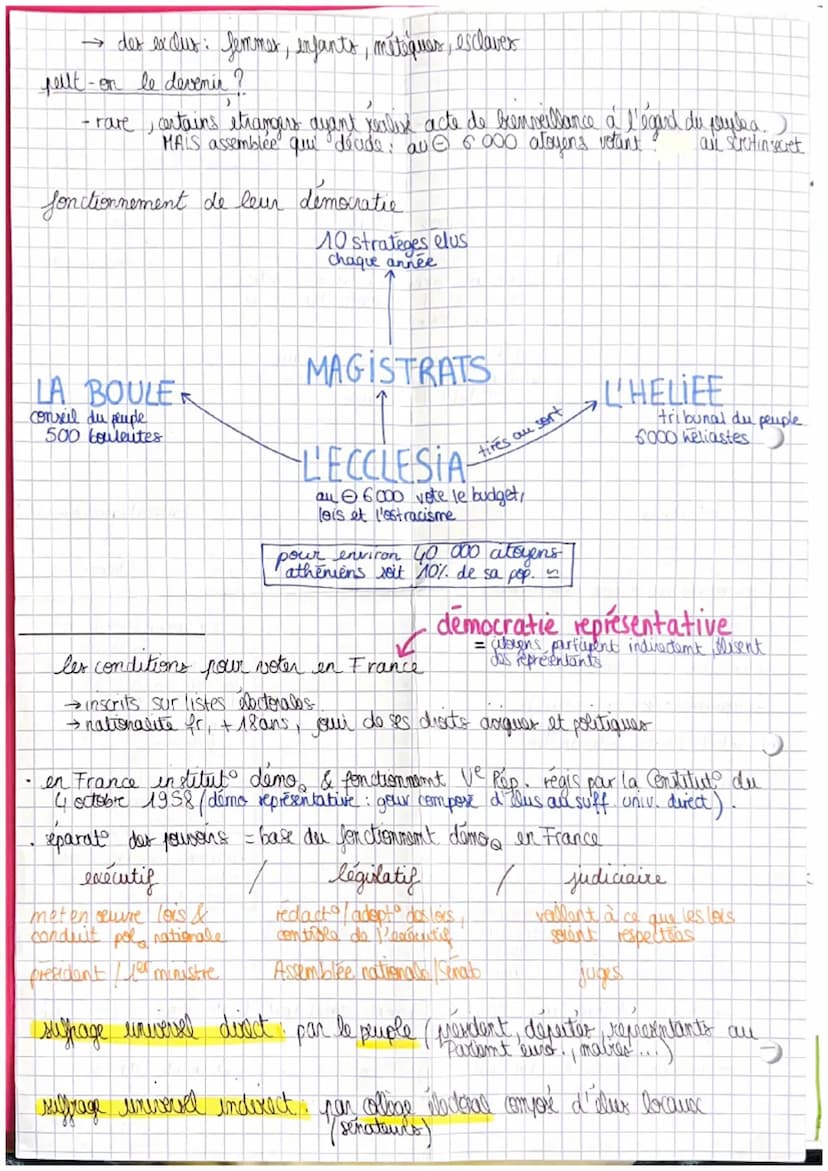 → des exclus : femmes, enfants, métèques, esclaves
peut-on le devenir ?
- rare, certains étrangers ayant réalisé acte de bienveillance à l'égard du peuple a.
MAIS assemblée qui décide : au ⊖ 6 000 citoyens votant au scrutin secret
fonctionnement de leur démocratie
10 stratèges élus
chaque année
MAGISTRATS
LA BOULE
conseil du peuple
500 bouleutes
L'HELIEE
tribunal du peuple
6000 héliastes
tirés au sort
L'ECCLESIA
au ⊖ 6000 vote le budget,
lois et l'ostracisme
pour environ 40 000 citoyens
athéniens soit 10% de sa pop.
démocratie représentative
= citoyens participent indirectemt, élisent
des représentants
les conditions pour voter en France
→ inscrits sur listes électorales
→ nationalité fr, + 18ans, joui de ses droits civiques et politiques
• en France institut° démoq & fonctionnemt Ve Rép. régis par la Constitut° du
4 octobre 1958 (démo représentative : gouv composé d'élus au suff. univ. direct).
• séparat° des pouvoirs = base du fonctionnemt démoq en France
exécutif / législatif / judiciaire
met en œuvre lois &
conduit polq nationale
rédact°/adopt° des lois,
contrôle de l'exécutif
veillent à ce que les lois
soient respectées
président / 1er ministre
Assemblée nationale/Sénat
juges
suffrage universel direct : par le peuple (président, députés, représentants au
Parlemt euro., maires...)
suffrage universel indirect : par collège électoral composé d'élus locaux
(sénateurs)